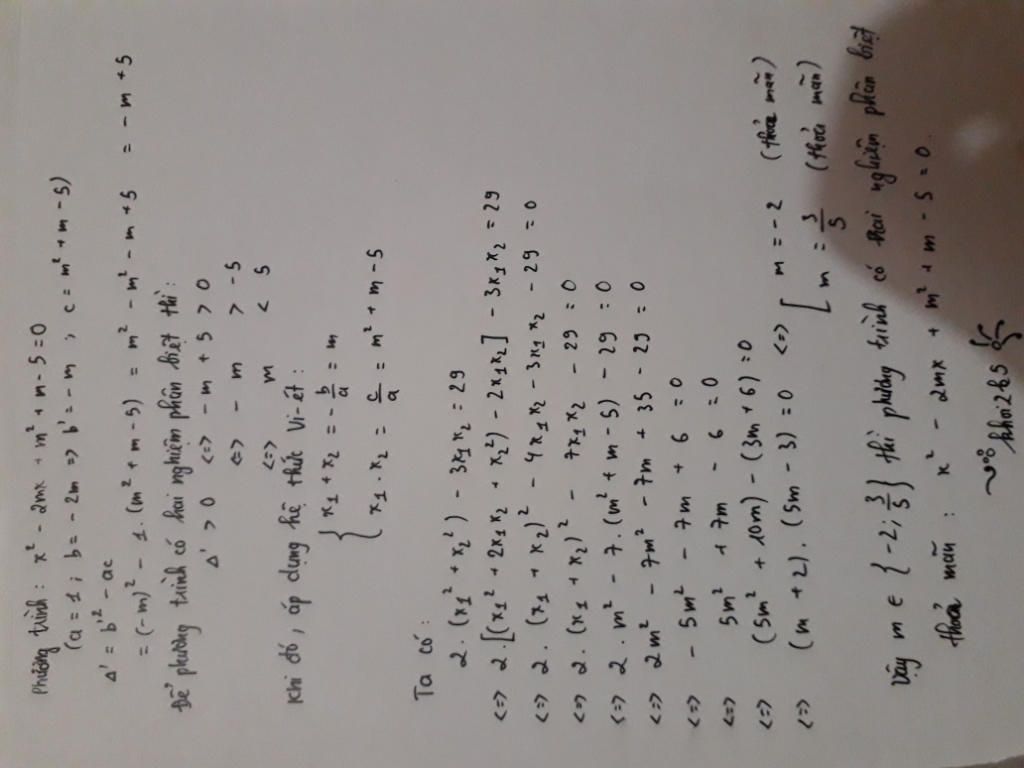 Phương trình : x² - 2mx + m² + m - 5 = 0
(a = 1 ; b = - 2m => b' = - m ; c = m² + m - 5)
Δ' = b'² - ac
= (-m)² - 1. (m² + m - 5) = m² - m² - m + 5 = - m + 5
Để phương trình có hai nghiệm phân biệt thì :
Δ' > 0 <=> - m + 5 > 0
<=> - m > -5
<=> m < 5
Khi đó , áp dụng hệ thức Vi-ét :
{ x₁ + x₂ = - b/a = m
x₁ . x₂ = c/a = m² + m - 5
Ta có :
2 . (x₁² + x₂²) - 3x₁x₂ = 29
<=> 2 . [(x₁² + 2x₁x₂ + x₂²) - 2x₁x₂] - 3x₁x₂ = 29
<=> 2 . (x₁ + x₂)² - 4x₁x₂ - 3x₁x₂ - 29 = 0
<=> 2 . (x₁ + x₂)² - 7x₁x₂ - 29 = 0
<=> 2 . m² - 7 . (m² + m - 5) - 29 = 0
<=> 2m² - 7m² - 7m + 35 - 29 = 0
<=> - 5m² - 7m + 6 = 0
<=> 5m² + 7m - 6 = 0
<=> (5m² + 10m) - (3m + 6) = 0
<=> (m + 2) . (5m - 3) = 0 <=> [ m = - 2 (thỏa mãn)
m = 3/5 (thỏa mãn)
Vậy m ∈ { -2 ; 3/5 } thì phương trình có hai nghiệm phân biệt
thỏa mãn : x² - 2mx + m² + m - 5 = 0.
khoi2b5